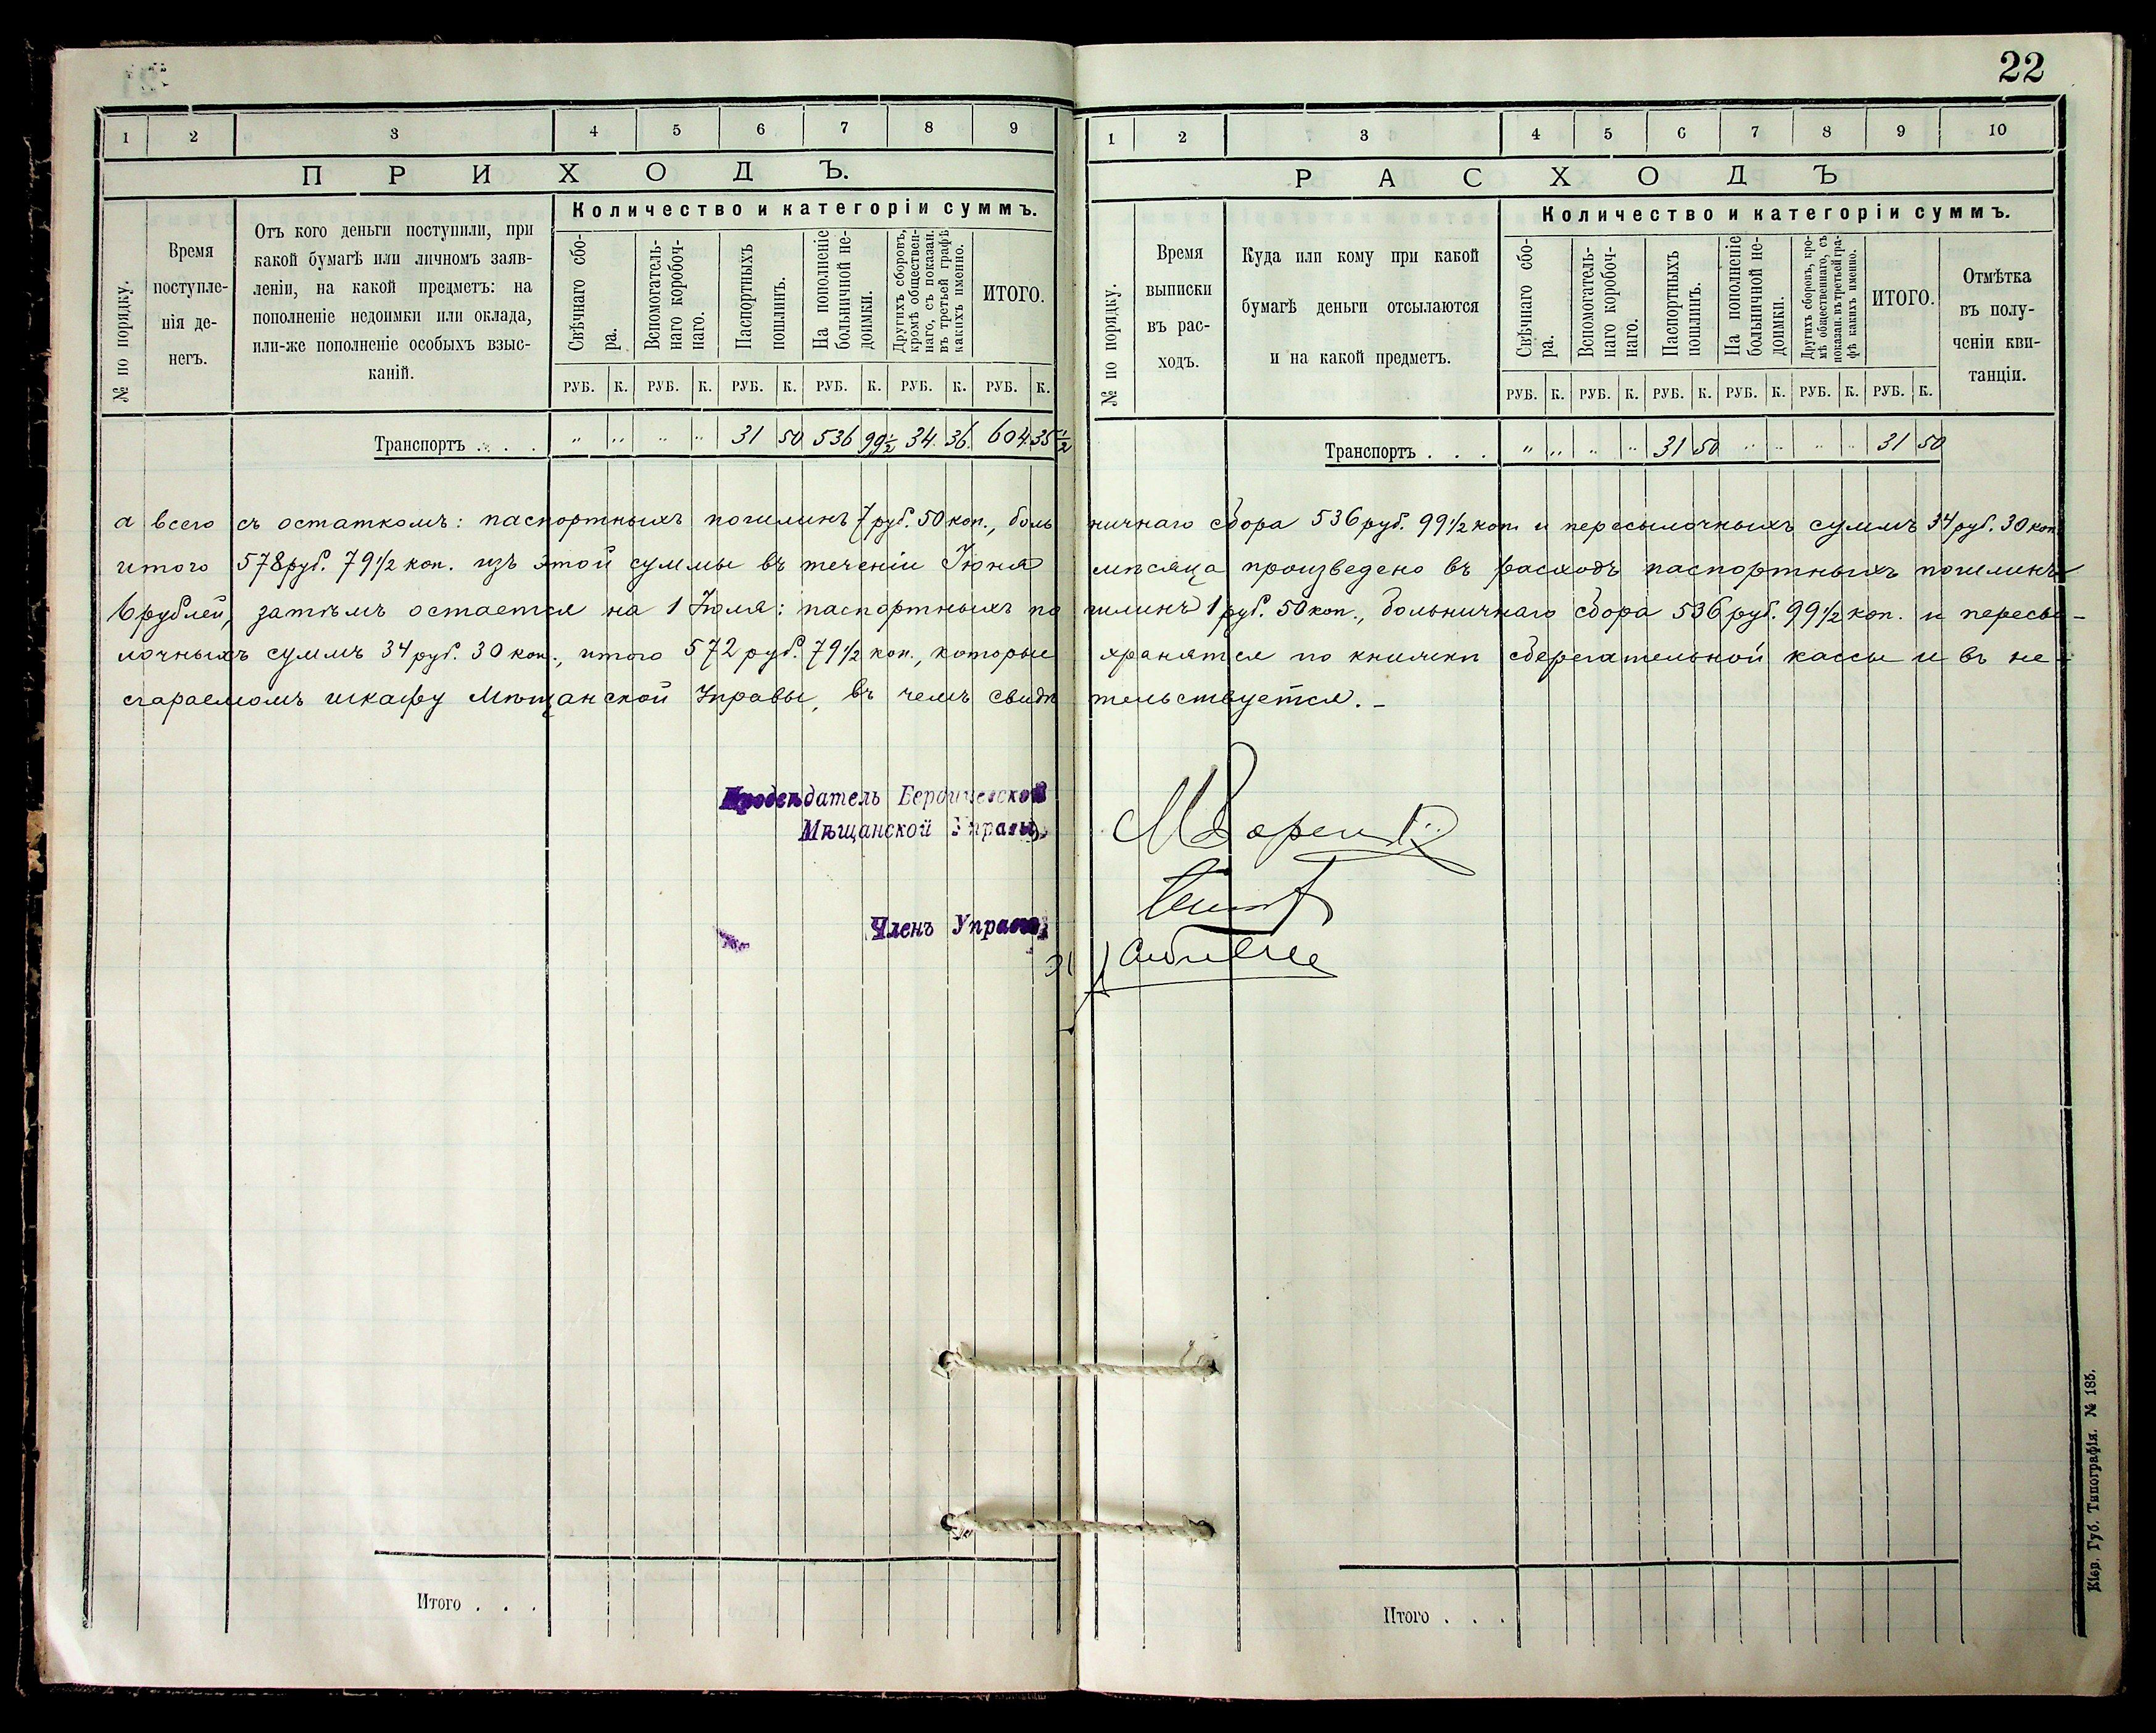 22
1 2 3 4 5 6 7 8 9
ПРИХОДЪ.
№ по порядку.
Время
поступле-
нія де-
негъ.
Отъ кого деньги поступили, при
какой бумагѣ или личномъ заяв-
леніи, на какой предметъ: на
пополненіе недоимки или оклада,
или-же пополненіе особыхъ взыс-
каній.
Количество и категоріи суммъ.
Свѣчнаго сбо-
ра.
Вспомогатель-
наго коробоч-
наго.
Паспортныхъ
пошлинъ.
На пополненіе
больничной не-
доимки.
Другихъ сборовъ,
кромѣ обществен-
наго, съ показан.
въ третьей графѣ
какихъ именно.
ИТОГО.
РУБ. К. РУБ. К. РУБ. К. РУБ. К. РУБ. К. РУБ. К.
Транспортъ . . . " " " " 31 50 536 99½ 34. 36. 604. 35½
1 2 3 4 5 6 7 8 9 10
РАСХОДЪ
№ по порядку.
Время
выписки
въ рас-
ходъ.
Куда или кому при какой
бумагѣ деньги отсылаются
и на какой предметъ.
Количество и категоріи суммъ.
Свѣчнаго сбо-
ра.
Вспомогатель-
наго коробоч-
наго.
Паспортныхъ
пошлинъ.
На пополненіе
больничной не-
доимки.
Другихъ сборовъ, кро-
мѣ общественнаго, съ
показан. въ третьей гра-
фѣ какихъ именно.
ИТОГО.
Отмѣтка
въ полу-
ченіи кви-
танціи.
РУБ. К. РУБ. К. РУБ. К. РУБ. К. РУБ. К. РУБ. К.
Транспортъ . . . " " " " 31 50 " " " " 31 50
а всего съ остаткомъ: паспортныхъ пошлинъ 7 руб. 50 коп., боль ничнаго сбора 536 руб. 99 1/2 коп. и пересылочныхъ суммъ 34 руб. 30 коп.
итого 578 руб. 79 1/2 коп. изъ этой суммы въ теченіи Іюня мѣсяца произведено въ расходъ паспортныхъ пошлинъ
6 рублей, затѣмъ остается на 1 Іюля: паспортныхъ по шлинъ 1 руб. 50 коп., больничнаго сбора 536 руб. 99 1/2 коп. и пересы-
лочныхъ суммъ 34 руб. 30 коп., итого 572 руб. 79 1/2 коп., которые хранятся по книжкѣ сберегательной кассы и въ не-
сгараемомъ шкафу Мѣщанской Управы, въ чемъ свидѣ тельствуется. -
Предсѣдатель Бердичевской
Мѣщанской Управы,
Членъ Управы
Итого . . .
Итого . . .
Кіев. Губ. Типографія. № 185.